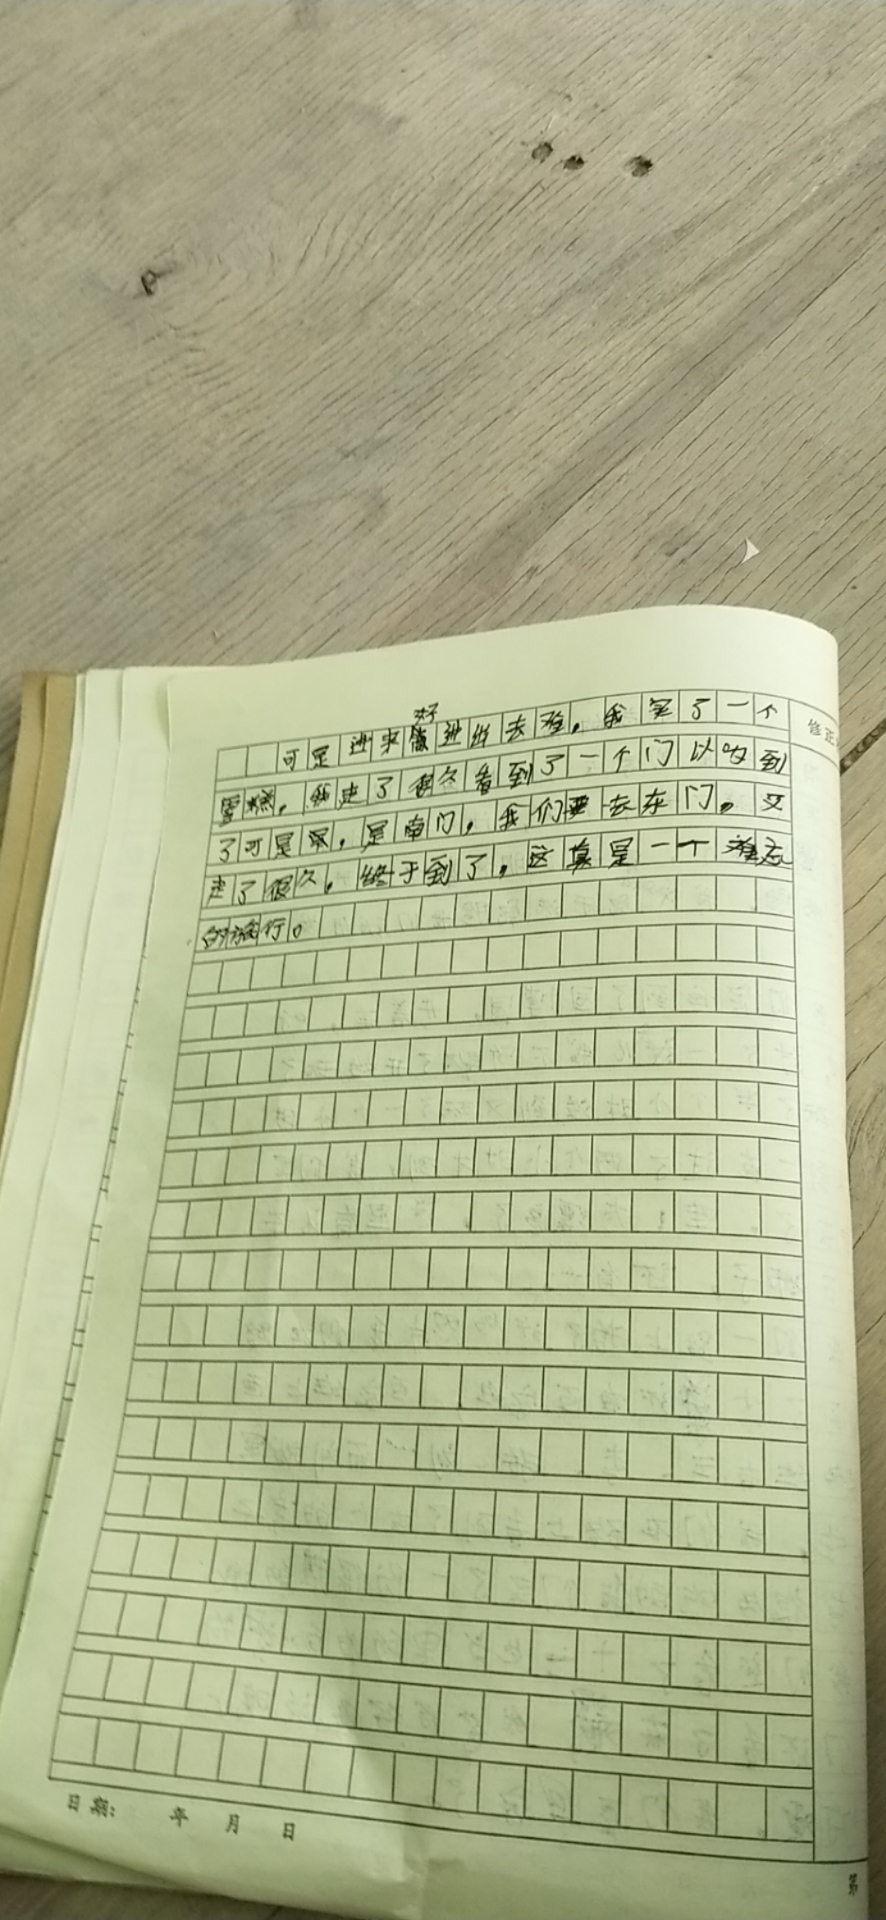 好
可是进来 进出去难，我买了一个
雪糕，我走了很久看到了一个门以为到
了可是 ，是南门，我们要去东门。又
走了很久，终于到了，这真是一个难忘
的旅行。
修正
日期： 年 月 日
第